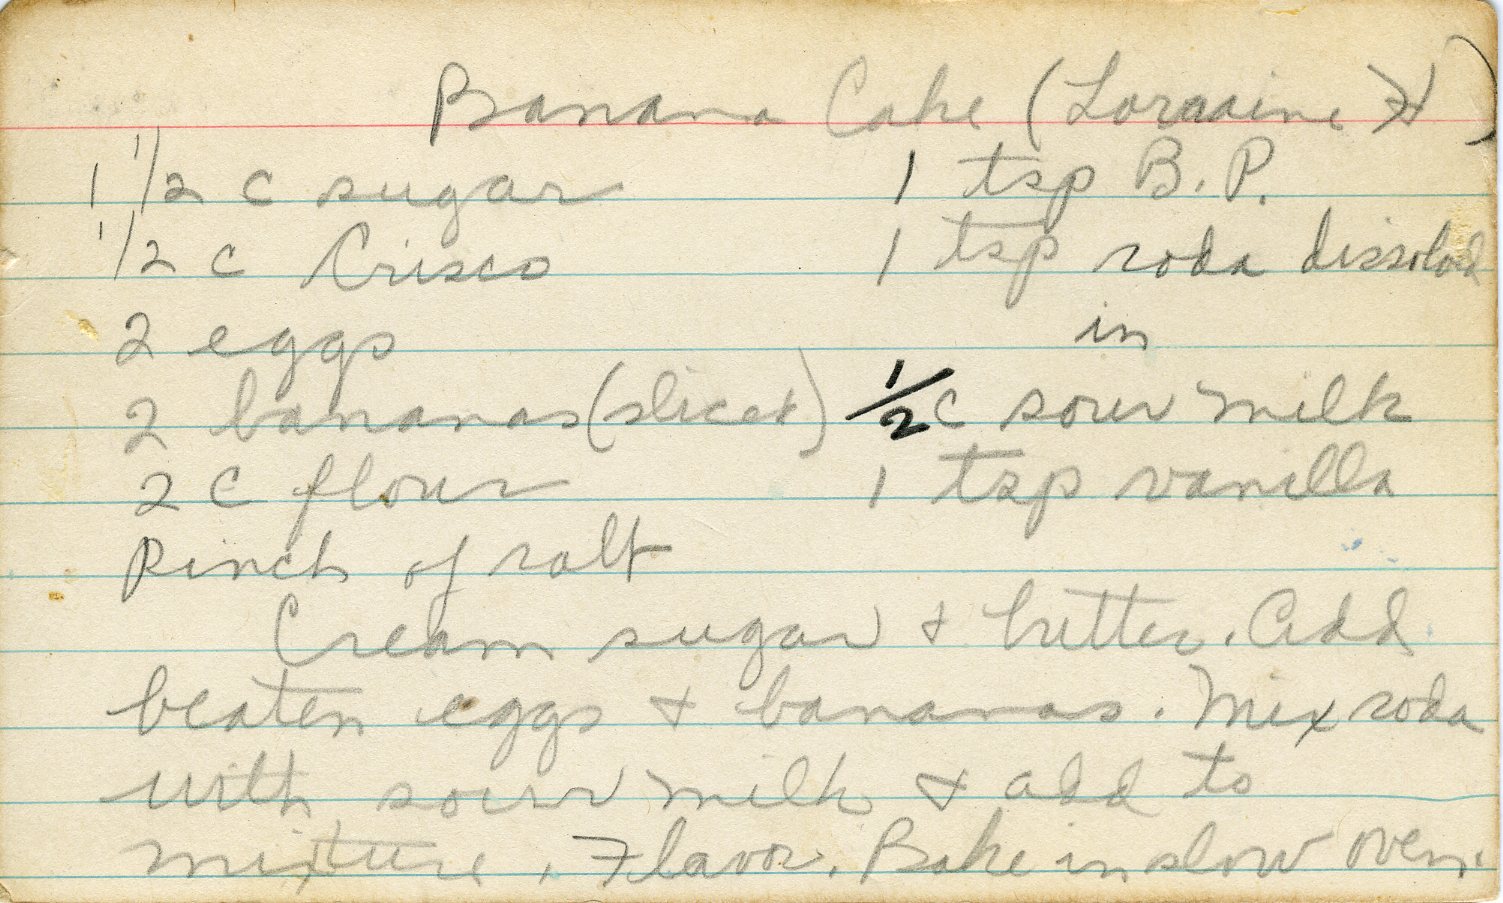 Banana Cake (Lorraine H)
1 1/2 c sugar 1 tsp B.P.
1/2 c Crisco 1 tsp soda dissolved
2 eggs in
2 bananas (sliced) 1/2 c sour milk
2 c flour 1 tsp vanilla
Pinch of salt
Cream sugar + butter. Add
beaten eggs + bananas. Mix soda
with sour milk + add to
mixture. Flavor. Bake in slow oven.